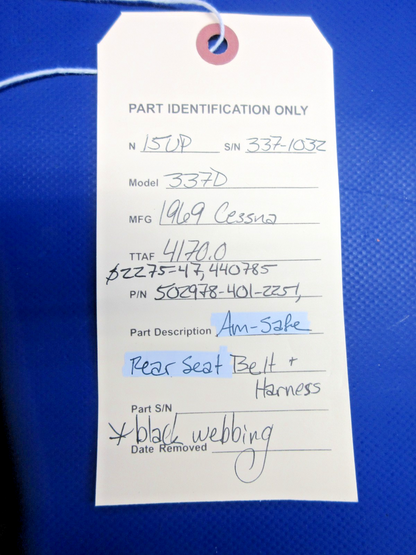 PART IDENTIFICATION ONLY
N 15UP S/N 337-1032
Model 337D
MFG 1969 Cessna
TTAF 4170.0
$2275=47,440785
P/N 502978-401-2251,
Part Description Am-Safe
Rear Seat Belt +
Harness
Part S/N
* black webbing
Date Removed